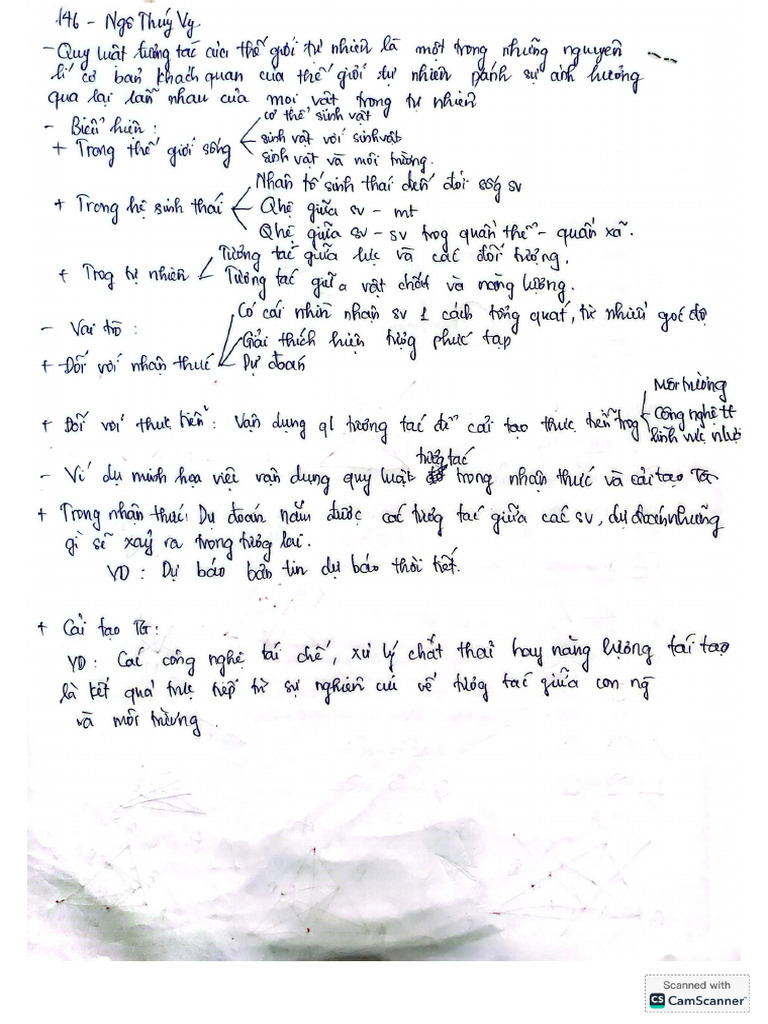 146 - Ngô Thuý Vy
- Quy luật tương tác của thế giới tự nhiên là một trong những nguyên
lí cơ bản khách quan của thế giới tự nhiên pánh sự ảnh hưởng
qua lại lẫn nhau của mọi vật trong tự nhiên
- Biểu hiện :
+ Trong thế giới sống
cơ thể sinh vật
sinh vật với sinh vật
sinh vật và môi trường.
+ Trong hệ sinh thái
Nhân tố sinh thái đến đời sống sv
Qhệ giữa sv - mt
Qhệ giữa sv - sv trog quần thể - quần xã.
+ Trog tự nhiên
Tương tác giữa lực và các đối tượng.
Tương tác giữa vật chất và năng lượng.
- Vai trò :
+ Đối với nhận thức
Có cái nhìn nhận sv 1 cách tổng quát, từ nhiều góc độ
Giải thích hiện tượng phức tạp
Dự đoán
+ Đối với thực tiễn : Vận dụng ql tương tác để cải tạo thực tiễn trog
Môi trường
Công nghệ tt
lĩnh vực
- Ví dụ minh họa việc vận dụng quy luật tương tác trong nhận thức và cải tạo TG
+ Trong nhận thức: Dự đoán nắm được các tương tác giữa các sv, dự đoán những
gì sẽ xảy ra trong tương lai.
VD : Dự báo bản tin dự báo thời tiết.
+ Cải tạo TG :
VD : Các công nghệ tái chế, xử lý chất thải hay năng lượng tái tạo
là kết quả trực tiếp từ sự nghiên cứu về tương tác giữa con ng
và môi trường .
Scanned with
CS CamScanner